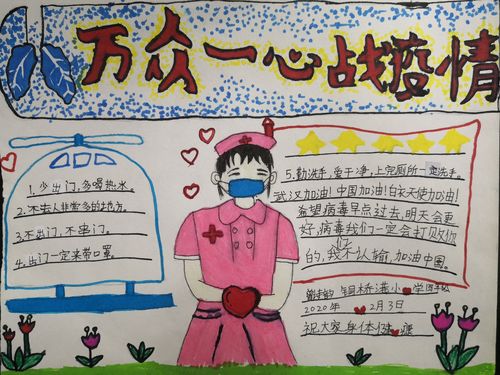 万众一心战疫情
1.少出门,多喝热水。
2.不去人非常多的地方。
3.不出门,不串门。
4.出门一定要带口罩。
5.勤洗手,爱干净,上完厕所一定洗手。
武汉加油!中国加油!白衣天使加油!
希望病毒早点过去,明天会更
好,病毒我们一定会打败你
的,我不认输,加油中国。
桥港小学
2020年2月3日
祝大家身体健康